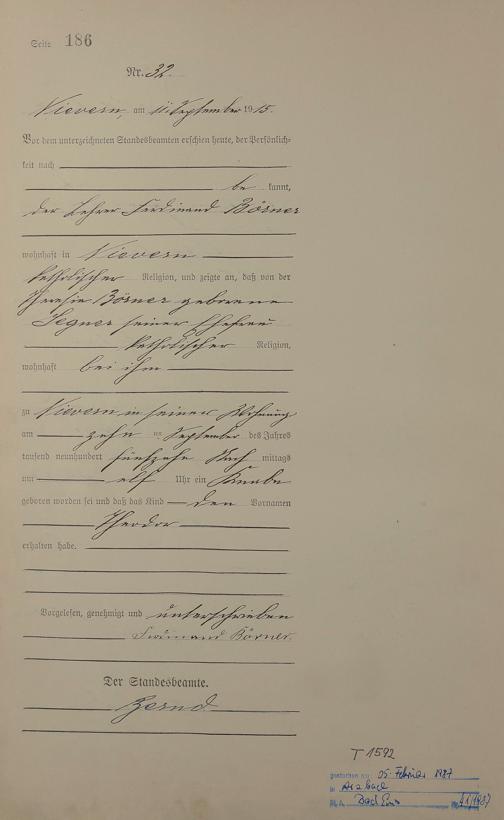 Seite 186
Nr. 32.
Nievern, am 11. September 1915.
Vor dem unterzeichneten Standesbeamten erschien heute, der Persönlich-
keit nach
be kannt,
der Lehrer Ferdinand Börner
wohnhaft in Nievern
katholischer Religion, und zeigte an, daß von der
Theresia Börner geborene
Segner seiner Ehefrau
katholischer Religion,
wohnhaft bei ihm
zu Nievern in seiner Wohnung
am zehn ten September des Jahres
tausend neunhundert fünfzehn Nach mittags
um elf Uhr ein Knabe
geboren worden sei und daß das Kind den Vornamen
Theodor
erhalten habe.
Vorgelesen, genehmigt und unterschrieben
Ferdinand Börner.
Der Standesbeamte.
Zernd
T 1592
gestorben am 05. Februar 1987
in Arzbach
St. A. Bad Ems Nr. /1987